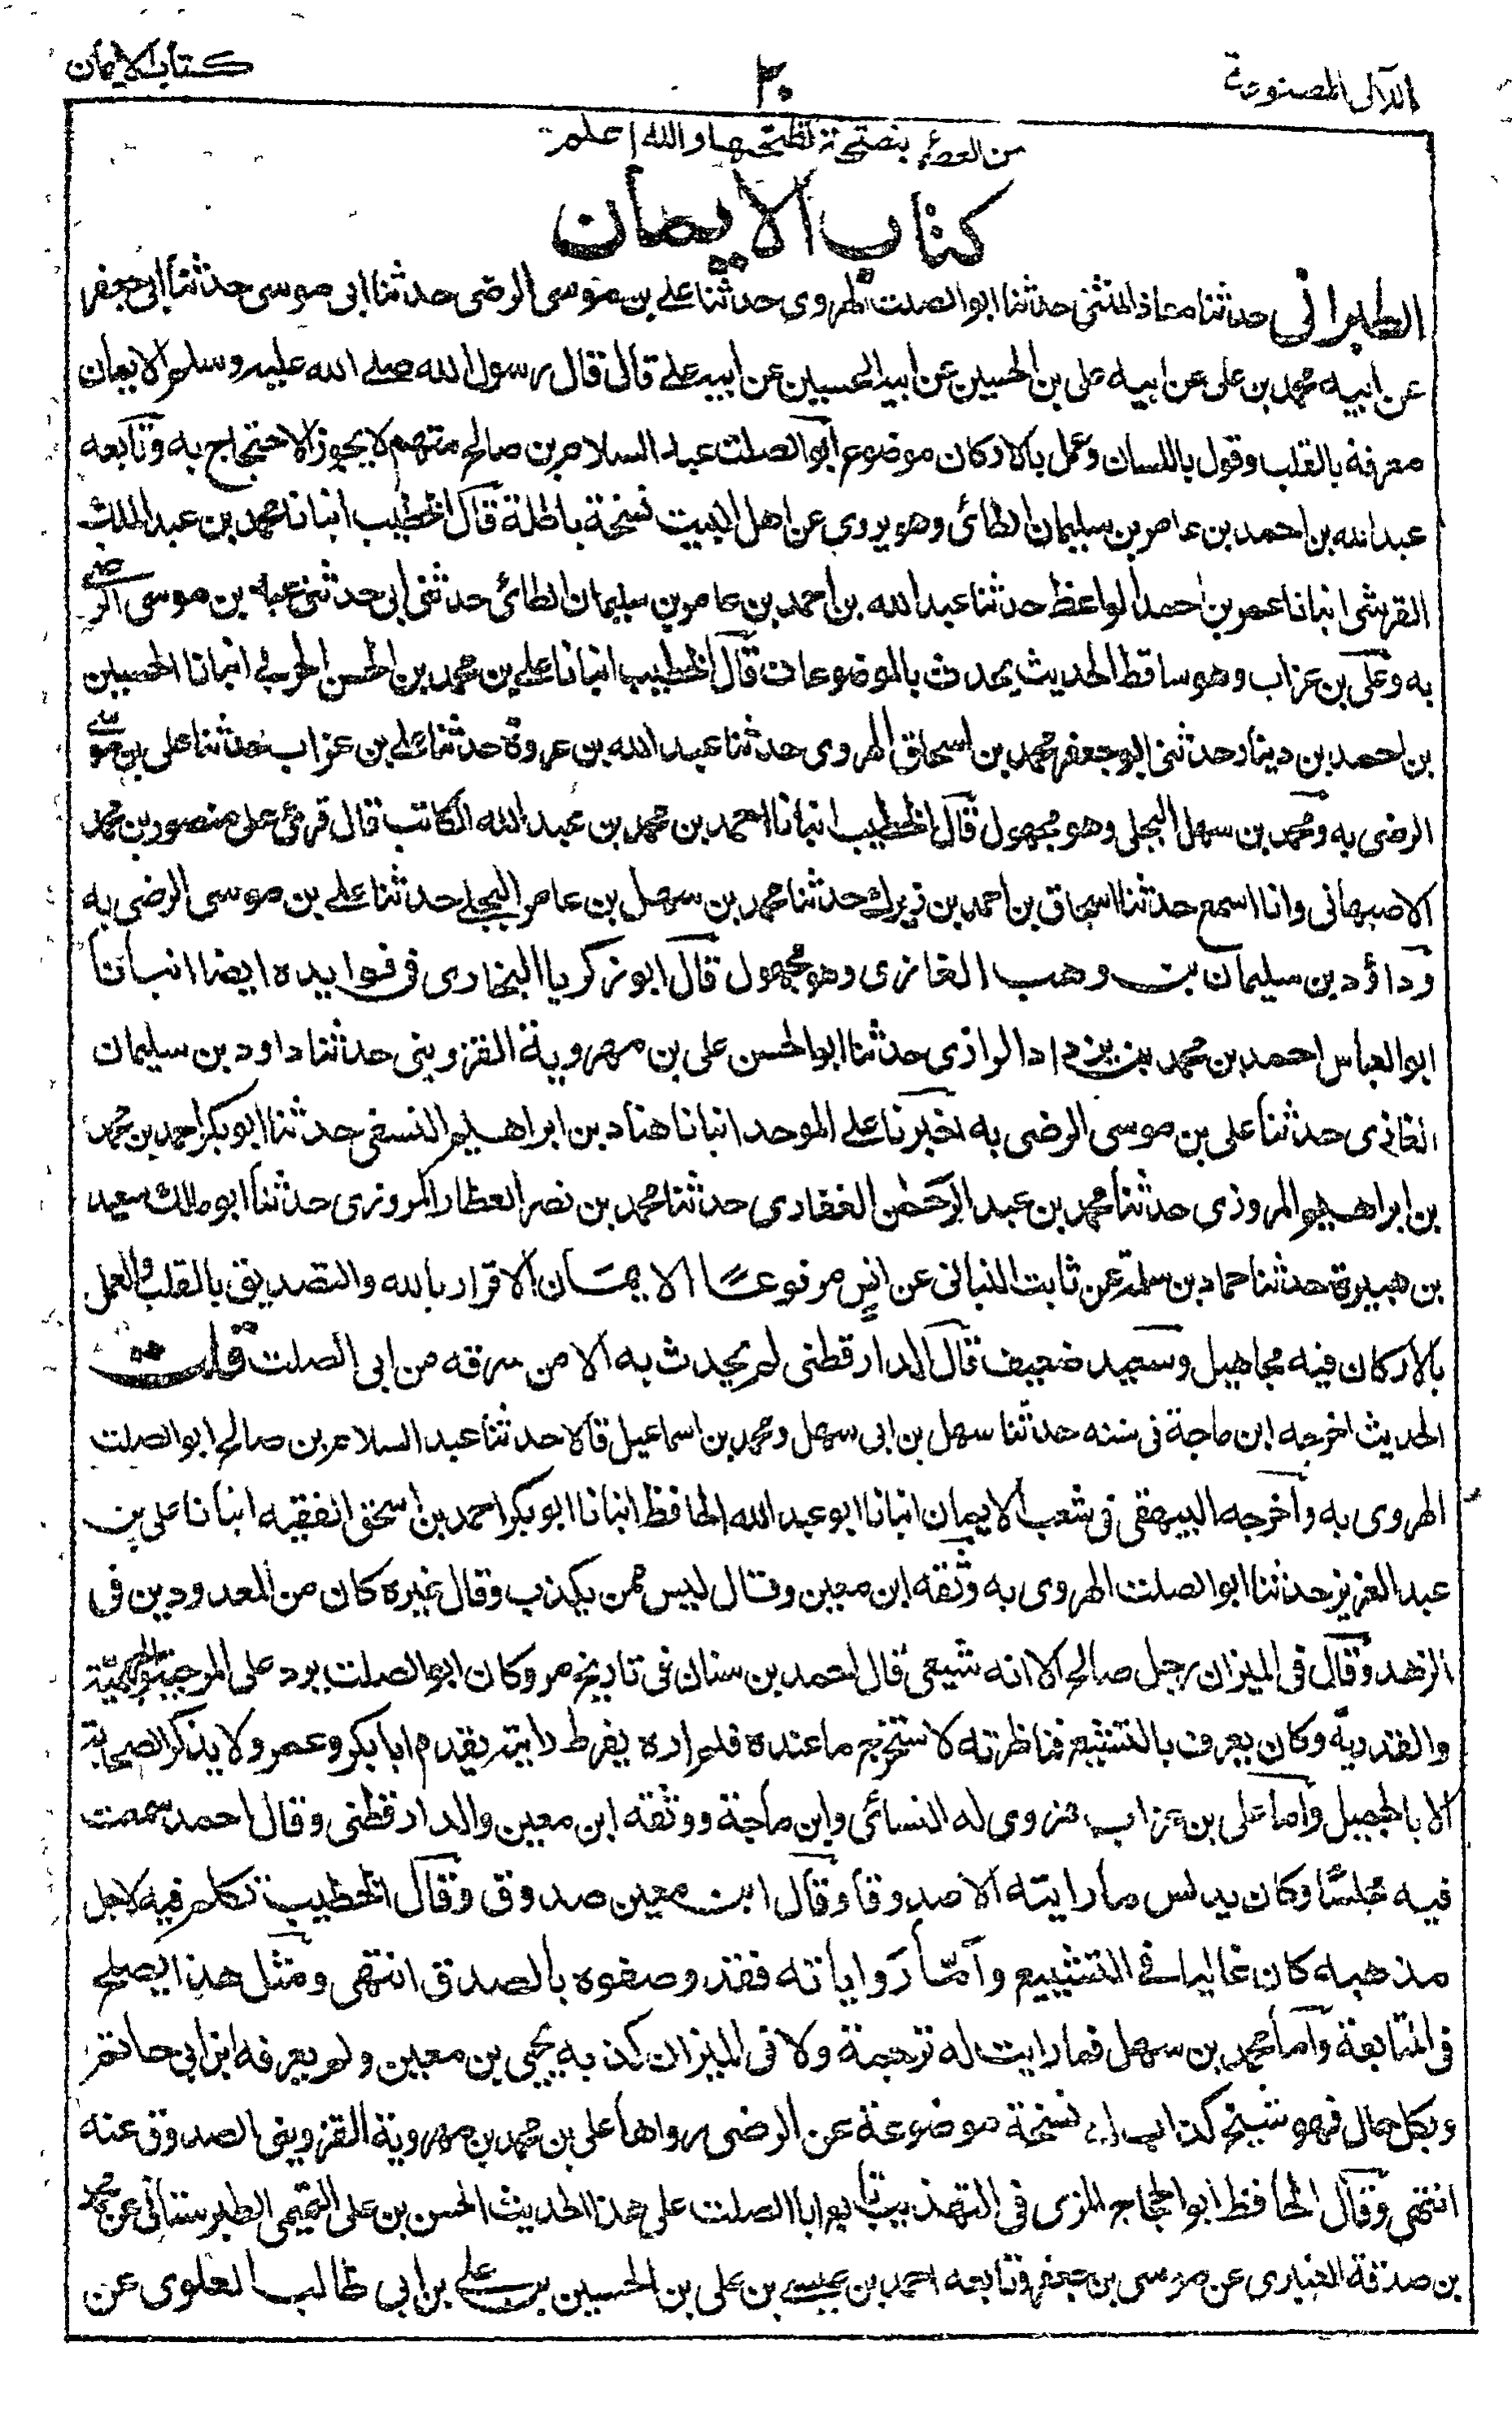 اللآلى المصنوعة
٢٠
كتاب الايمان
من العصر بنصحة نظنحها والله اعلم
كتاب الايمان
الطبرانى حدثنا معاذ المثنى حدثنا ابو الصلت الهروى حدثنا على بن موسى الرضى حدثنا ابى موسى حدثنا ابى جعفر
عن ابيه محمد بن على عن ابيه على بن الحسين عن ابيه الحسين عن ابيه على قال قال رسول الله صلى الله عليه وسلم الايمان
معرفة بالقلب وقول باللسان وعمل بالاركان موضوع ابو الصلت عبد السلام بن صالح متهم لا يجوز الاحتجاج به وتابعه
عبد الله بن احمد بن عامر بن سليمان الطائى وهو يروى عن اهل البيت نسخة باطلة قال الخطيب انبانا محمد بن عبد الملك
القرشى انبانا عمر بن احمد الواعظ حدثنا عبد الله بن احمد بن عامر بن سليمان الطائى حدثنى ابى حدثنى على بن موسى الرضى
به وعلى بن غراب وهو ساقط الحديث يحدث بالموضوعات قال الخطيب انبانا على بن محمد بن الحسن الحربى انبانا الحسين
بن احمد بن دينار حدثنى ابو جعفر محمد بن اسحاق الهروى حدثنا عبد الله بن عروة حدثنا على بن عزاب حدثنا على بن موسى
الرضى به ومحمد بن سهل البجلى وهو مجهول قال الخطيب انبانا احمد بن محمد بن عبد الله الكاتب قال قرئ على منصور بن محمد
الاصبهانى وانا اسمع حدثنا اسحاق بن احمد بن زيرك حدثنا محمد بن سهل بن عامر البجلى حدثنا على بن موسى الرضى به
وداؤد بن سليمان بن وهب الغازى وهو مجهول قال ابو زكريا البخارى فى فوايده ايضا انبانا
ابو العباس احمد بن محمد بن يزداد الرازى حدثنا ابو الحسن على بن مهروية القزوينى حدثنا داود بن سليمان
الغازى حدثنا على بن موسى الرضى به اخبرنا على الموحد انبانا هناد بن ابراهيم النسفى حدثنا ابو بكر احمد بن محمد
بن ابراهيم المروزى حدثنا محمد بن عبد الرحمٰن الغفارى حدثنا محمد بن نصر العطار المروزى حدثنا ابو مالك سعيد
بن هبيرة حدثنا حماد بن سلمة عن ثابت البنانى عن انس مرفوعا الايمان الاقرار بالله والتصديق بالقلب والعمل
بالاركان فيه مجاهيل وسعيد ضعيف قال الدارقطنى لم يحدث به الا من سرقه من ابى الصلت قلت
الحديث اخرجه ابن ماجة فى سننه حدثنا سهل بن ابى سهل ومحمد بن اسماعيل قالا حدثنا عبد السلام بن صالح ابو الصلت
الهروى به واخرجه البيهقى فى شعب الايمان انبانا ابو عبد الله الحافظ انبانا ابو بكر احمد بن اسحق الفقيه انبانا على بن
عبد العزيز حدثنا ابو الصلت الهروى به وثقه ابن معين وقال ليس ممن يكذب وقال غيره كان من المعدودين فى
الزهد وقال فى الميزان رجل صالح الا انه شيعى قال احمد بن سنان فى تاريخ مرو كان ابو الصلت يرد على المرجية والجهميّة
والقدريّة وكان يعرف بالتشيع فناظرته لاستخرج ما عنده فلم اره يفرط رايته يقدم ابا بكر وعمر ولا يذكر الصحابة
الا بالجميل واما على بن عزاب فروى له النسائى وابن ماجة ووثقه ابن معين والدارقطنى وقال احمد سمعت
فيه مجلسًا وكان يدلس ما رايته الا صدوقا وقال ابن معين صدوق وقال الخطيب تكلم فيه لاجل
مذهبه كان غاليا فى التشييع واما رواياته فقد وصفوه بالصدق انتهى ومثل هذا يصلح
فى المتابعة واما محمد بن سهل فما رايت له ترجمة ولا فى الميزان كذبه يحيى بن معين ولم يعرفه ابن ابى حاتم
وبكل حال فهو شيخ كذاب له نسخة موضوعة عن الرضى رواها على بن محمد بن مهروية القزوينى الصدوق عنه
انتهى وقال الحافظ ابو الحجاج المزى فى التهذيب تابع ابا الصلت على هذا الحديث الحسن بن على التميمى الطبرستانى عن محمد
بن صدقة العنبارى عن موسى بن جعفر وتابعه احمد بن عيسى بن على بن الحسين بن على بن ابى طالب العلوى عن